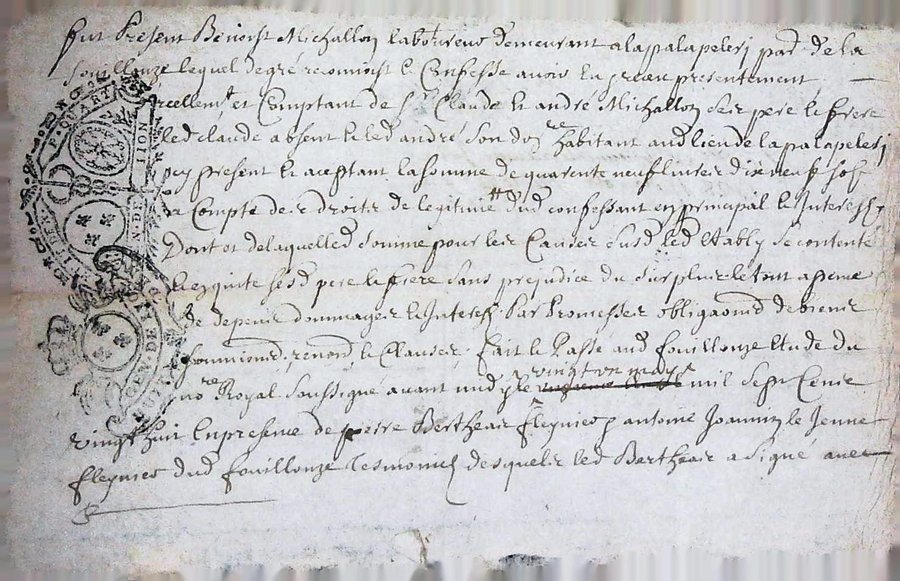 fut Présent Benoist Michallon laboureur demeurant a la palapelerj par. de la
fouillouze lequel de gré reconnoist et Confesse avoir eu et receu presentement
reellemt et Comptant de Sr Claude et andré Michallon ses pere et frere
led. claude absent et led andré son don re habitant aud lieu de la palapelerj
icy present et aceptant la somme de quarente neuf livres dix neuf sols
a Compte des droits de legitime dud confessant en principal et Interestz
Dont et de laquelled somme pour les Causes susd led Estably se contente
et quitte sesd pere et frere sans prejudice du surplus le tout a peine
de depens dommages et Interestz Par Promesses obligaond de biens
soumiond, renond, et Clauses. fait et Passé aud fouillouze Etude du
nore Royal soussigné avant midy le vingt un may mil Sept Cents
vingt huit En presence de pierre Bertheas et antoine Joannin le Jeune
dud fouillouze Tesmoins desquels led Bertheas a signé avec